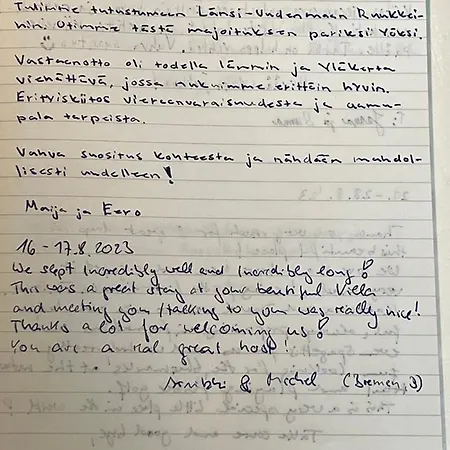 Tulimme tutustumaan Länsi-Uudenmaan Ruukkei-
hin. Otimme tästä majoituksen pariksi yöksi.
Vastaanotto oli todella lämmin ja Yläkerta
viehättävä, jossa nukuimme erittäin hyvin.
Erityiskiitos vieraanvaraisuudesta ja aamu-
pala tarpeista.
Vahva suositus kohteesta ja nähdään mahdol-
lisesti uudelleen!
Maija ja Eero
16 - 17.8.2023
We slept incredibly well and incredibly long!
This was a great stay at your beautiful Villa
and meeting you / talking to you was really nice!
Thanks a lot for welcoming us!
You are a real great host!
& Michel (Bremen,